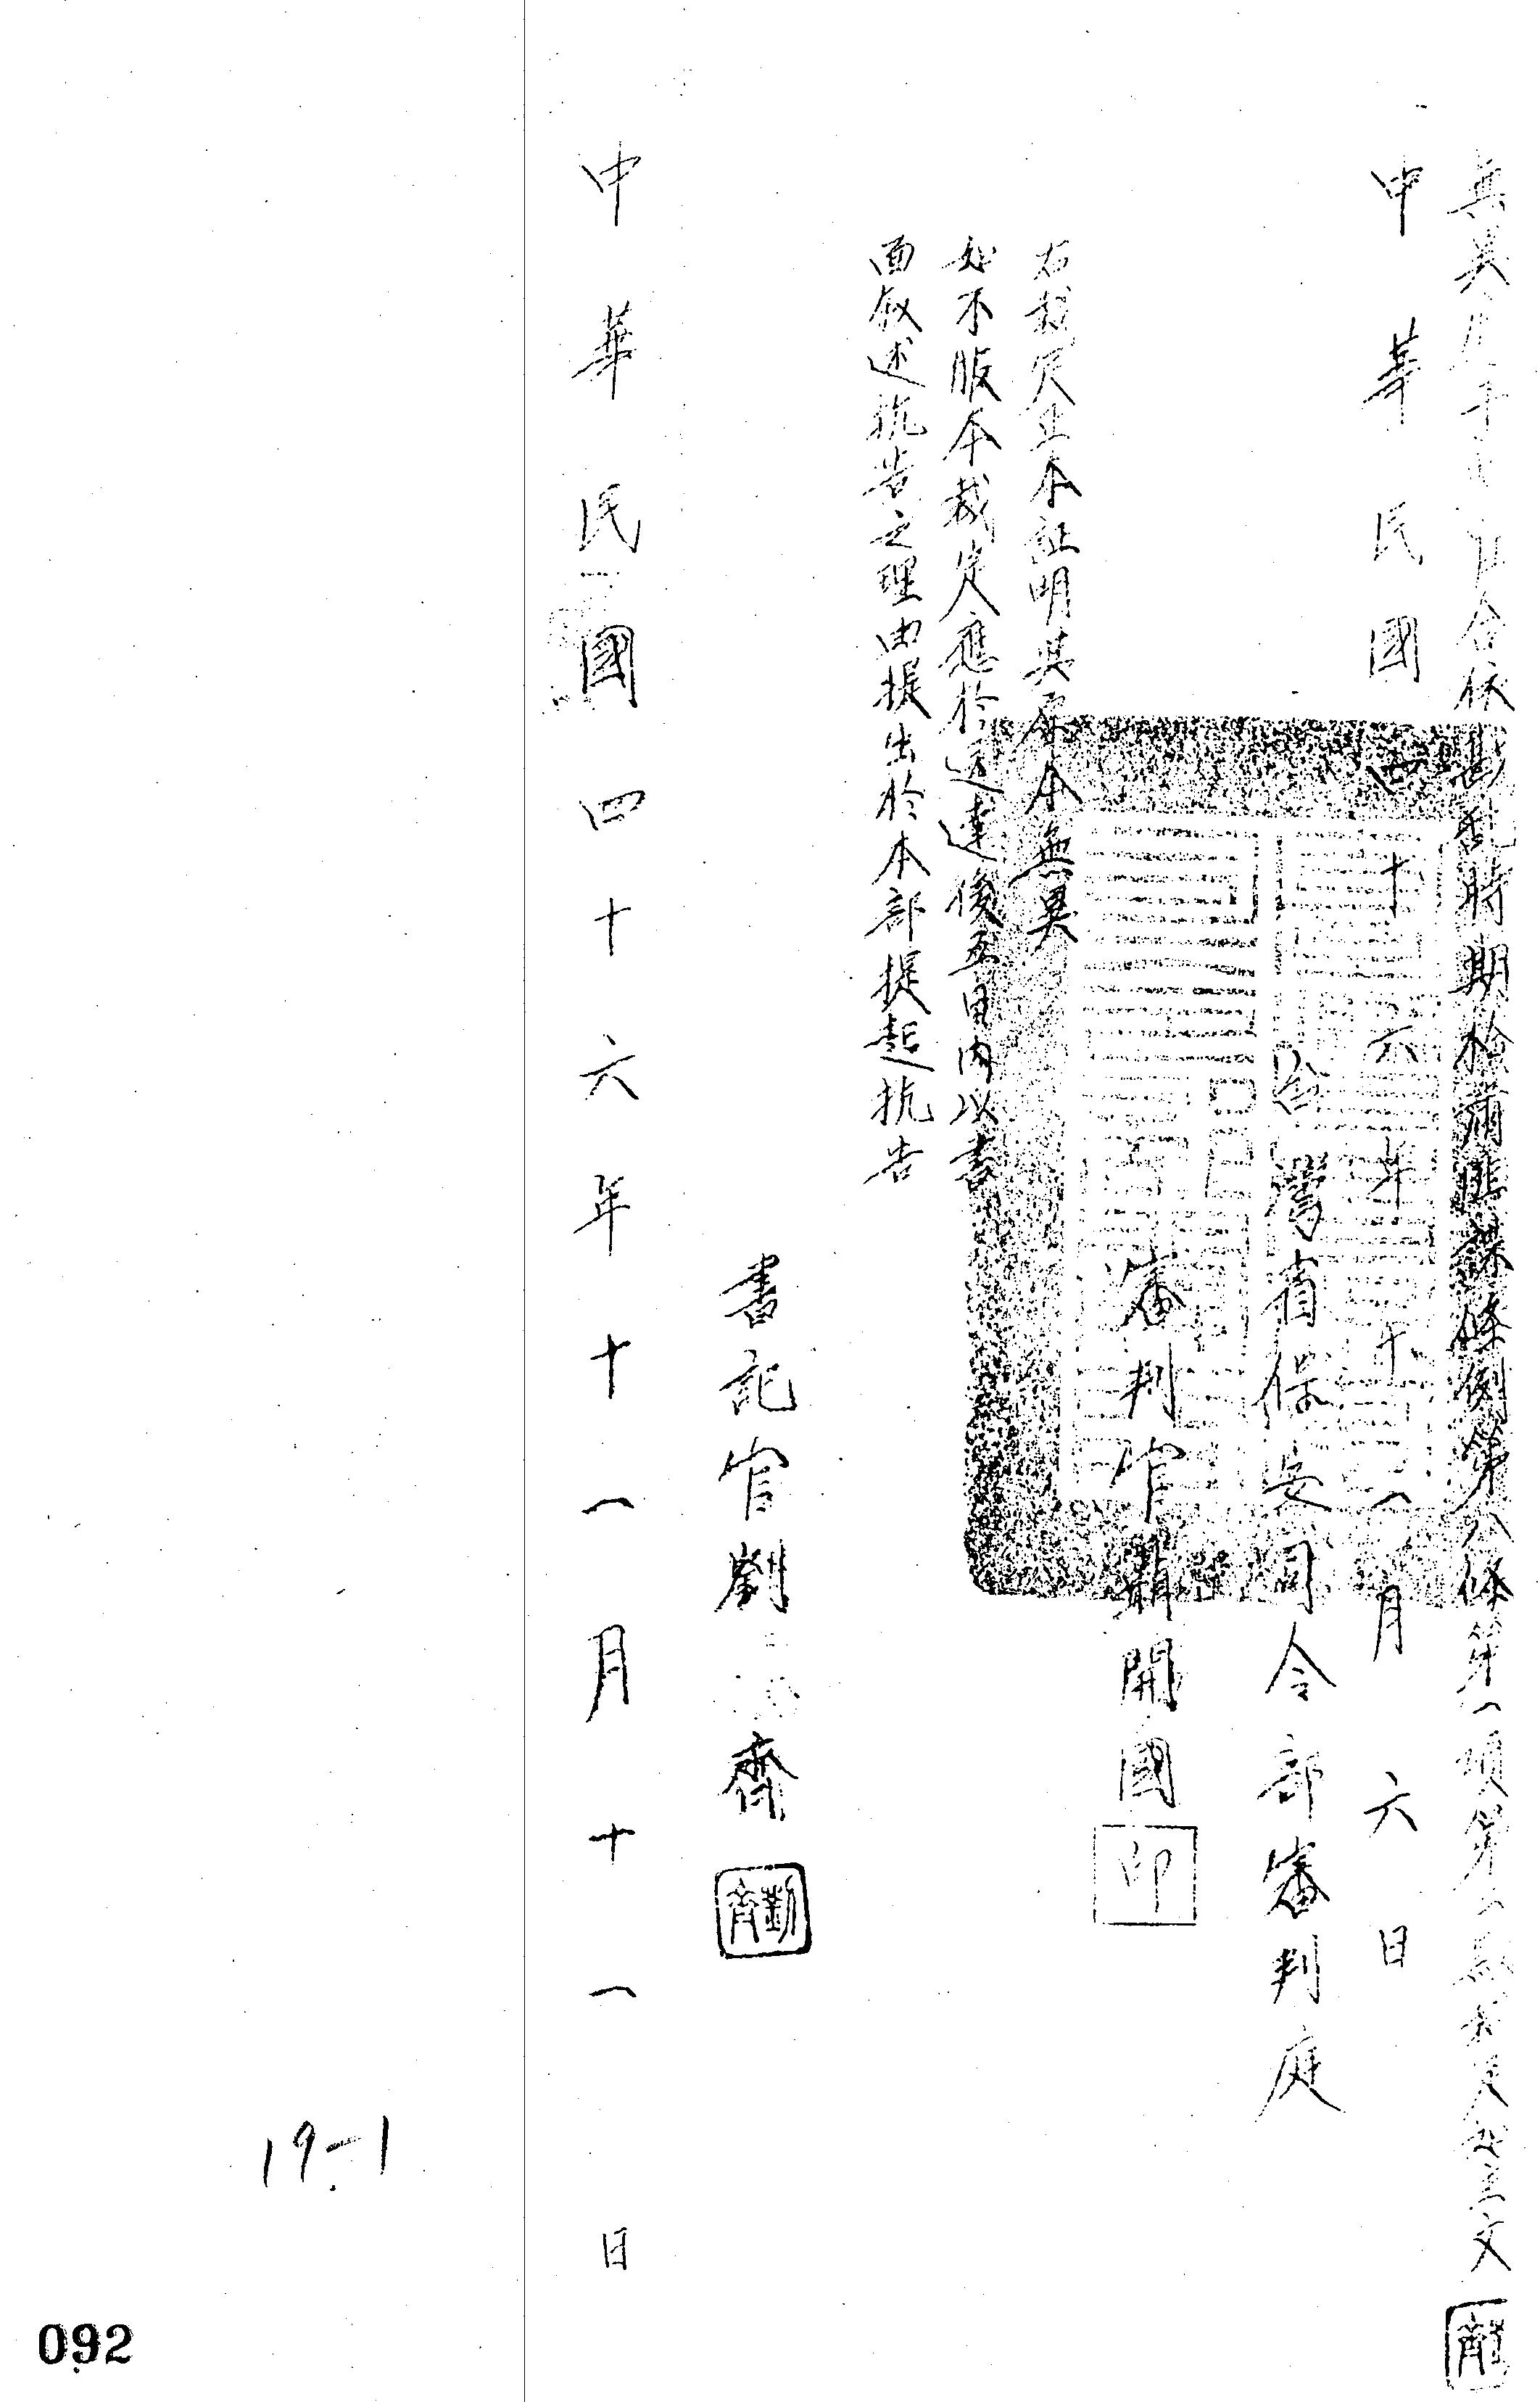 合依戡亂時期檢肅匪諜條例第八條第一項第二款裁定如主文
中華民國四十六年十一月六日
台灣省保安司令部審判庭
審判官聶開國
印
右裁定正本証明與原本無異
如不服本裁定應於送達後五日內以書
面敘述抗告之理由提出於本部提起抗告
書記官劉 齊
中華民國四十六年十一月十一日
19-1
092